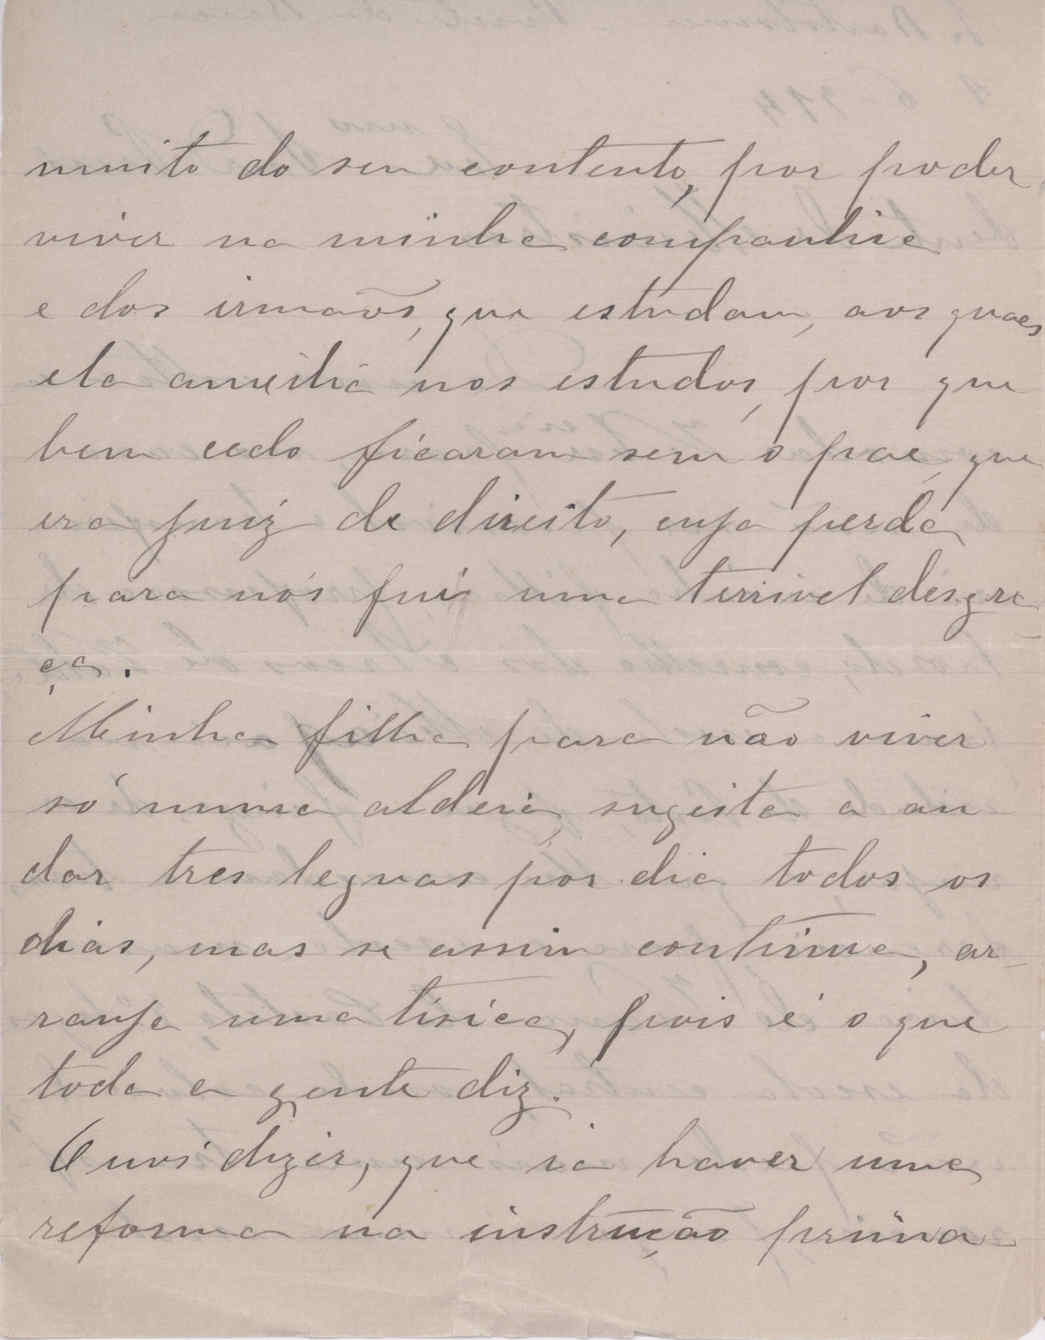 muito do seu contento, por poder
viver na minha companhia
e dos irmãos, que estudam, aos quaes
ela auxilia nos estudos, por que
bem cedo ficaram sem o pae, que
era juiz de direito, cuja perda
para nós fui uma terrivel desgra
ça.
Minha filha para não viver
só numa aldeia, sugeita a an
dar tres leguas por dia todos os
dias, mas se assim continua, ar-
ranja uma tisica, pois é o que
toda a gente diz.
Ouvi dizer, que ia haver uma
reforma na instrução prima